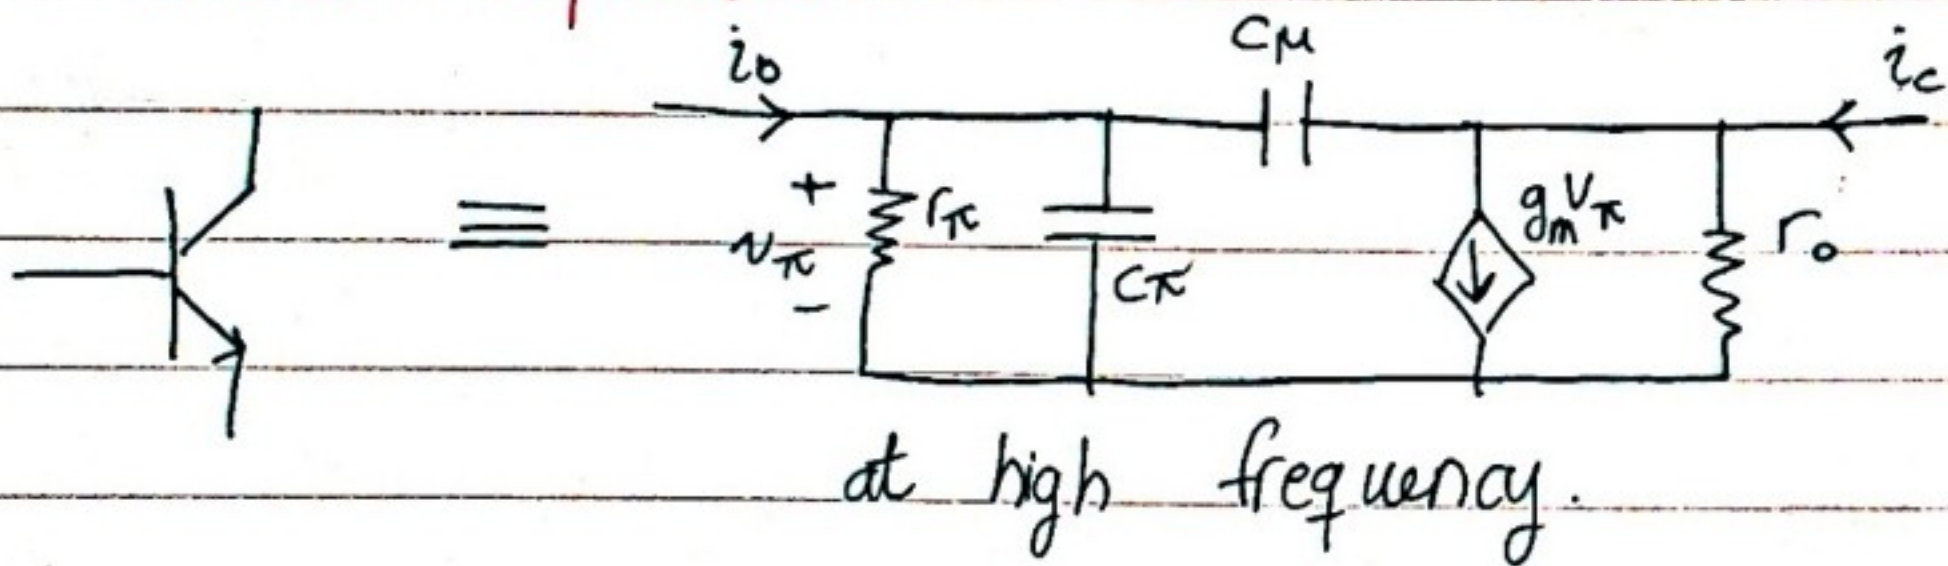 Cμ
i_b
i_c
+
v_π
-
r_π
Cπ
g_m v_π
r_o
at high frequency.